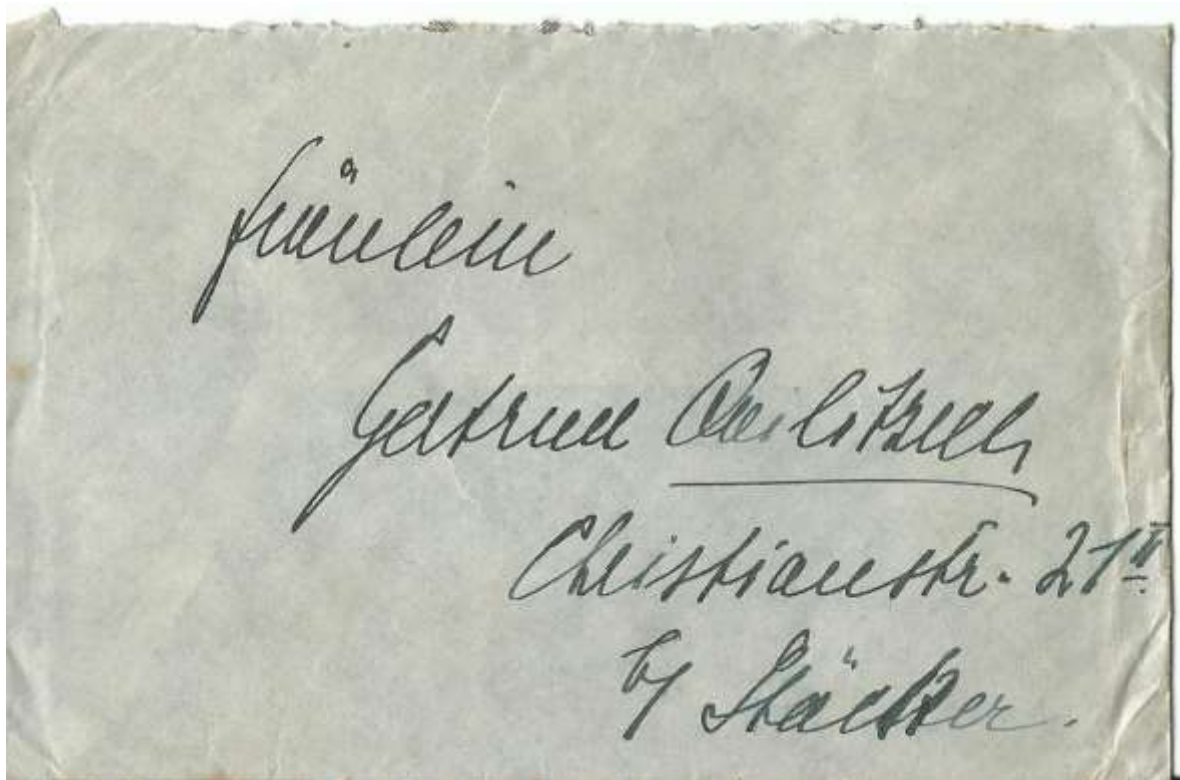 Fräulein
Gertrud Quilitzsch
Christianstr. 21 II.
b/ Stäcker.